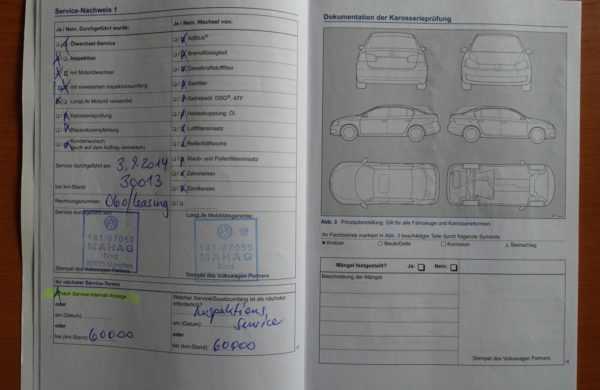 Service-Nachweis 1
Ja / Nein: Durchgeführt wurde:
Ölwechsel-Service
Inspektion
mit Motorölwechsel
mit erweitertem Inspektionsumfang
LongLife Motoröl verwendet
Karosserieprüfung
Reparaturempfehlung
Kundenwunsch
(auch auf dem Auftrag vermerken!)
Service durchgeführt am: 3.9.2014
bei km-Stand: 30013
Rechnungsnummer: Obo/leasing
Service durchgeführt von:
141/67059
MAHAG
Nord
80805 München
Stempel des Volkswagen Partners
Ja / Nein: Wechsel von:
AdBlue®
Bremsflüssigkeit
Dieselkraftstofffilter
Gasfilter
Getriebeöl: DSG®, ATF
Haldexkupplung: Öl
Luftfiltereinsatz
Reifenfüllflasche
Staub- und Pollenfiltereinsatz
Zahnriemen
Zündkerzen
LongLife Mobilitätsgarantie:
141/67059
MAHAG
Nord
Stempel des Volkswagen Partners
Ihr nächster Service-Termin
Nach Service-Intervall-Anzeige
oder
am (Datum):
oder
bei (km-Stand): 60000
Welcher Service/Zusatzumfang ist als nächster
erforderlich?
Inspektions
Service
am (Datum):
oder
bei (km-Stand): 60000
Dokumentation der Karosserieprüfung
Abb. 3 Prinzipdarstellung. Gilt für alle Fahrzeuge und Karosserieformen.
Ihr Fachbetrieb markiert in Abb. 3 beschädigte Teile durch folgende Symbole:
Kratzer Beule/Delle Korrosion Steinschlag
Mängel festgestellt? Ja: Nein:
Beschreibung der Mängel:
Stempel des Volkswagen Partners